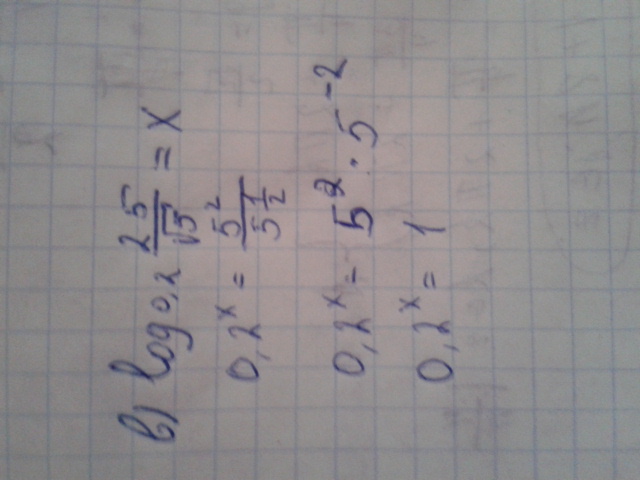 в) log₀,₂ 25/√5 = x
0,2ˣ = 5²/5^(1/2)
0,2ˣ = 5² · 5⁻²
0,2ˣ = 1